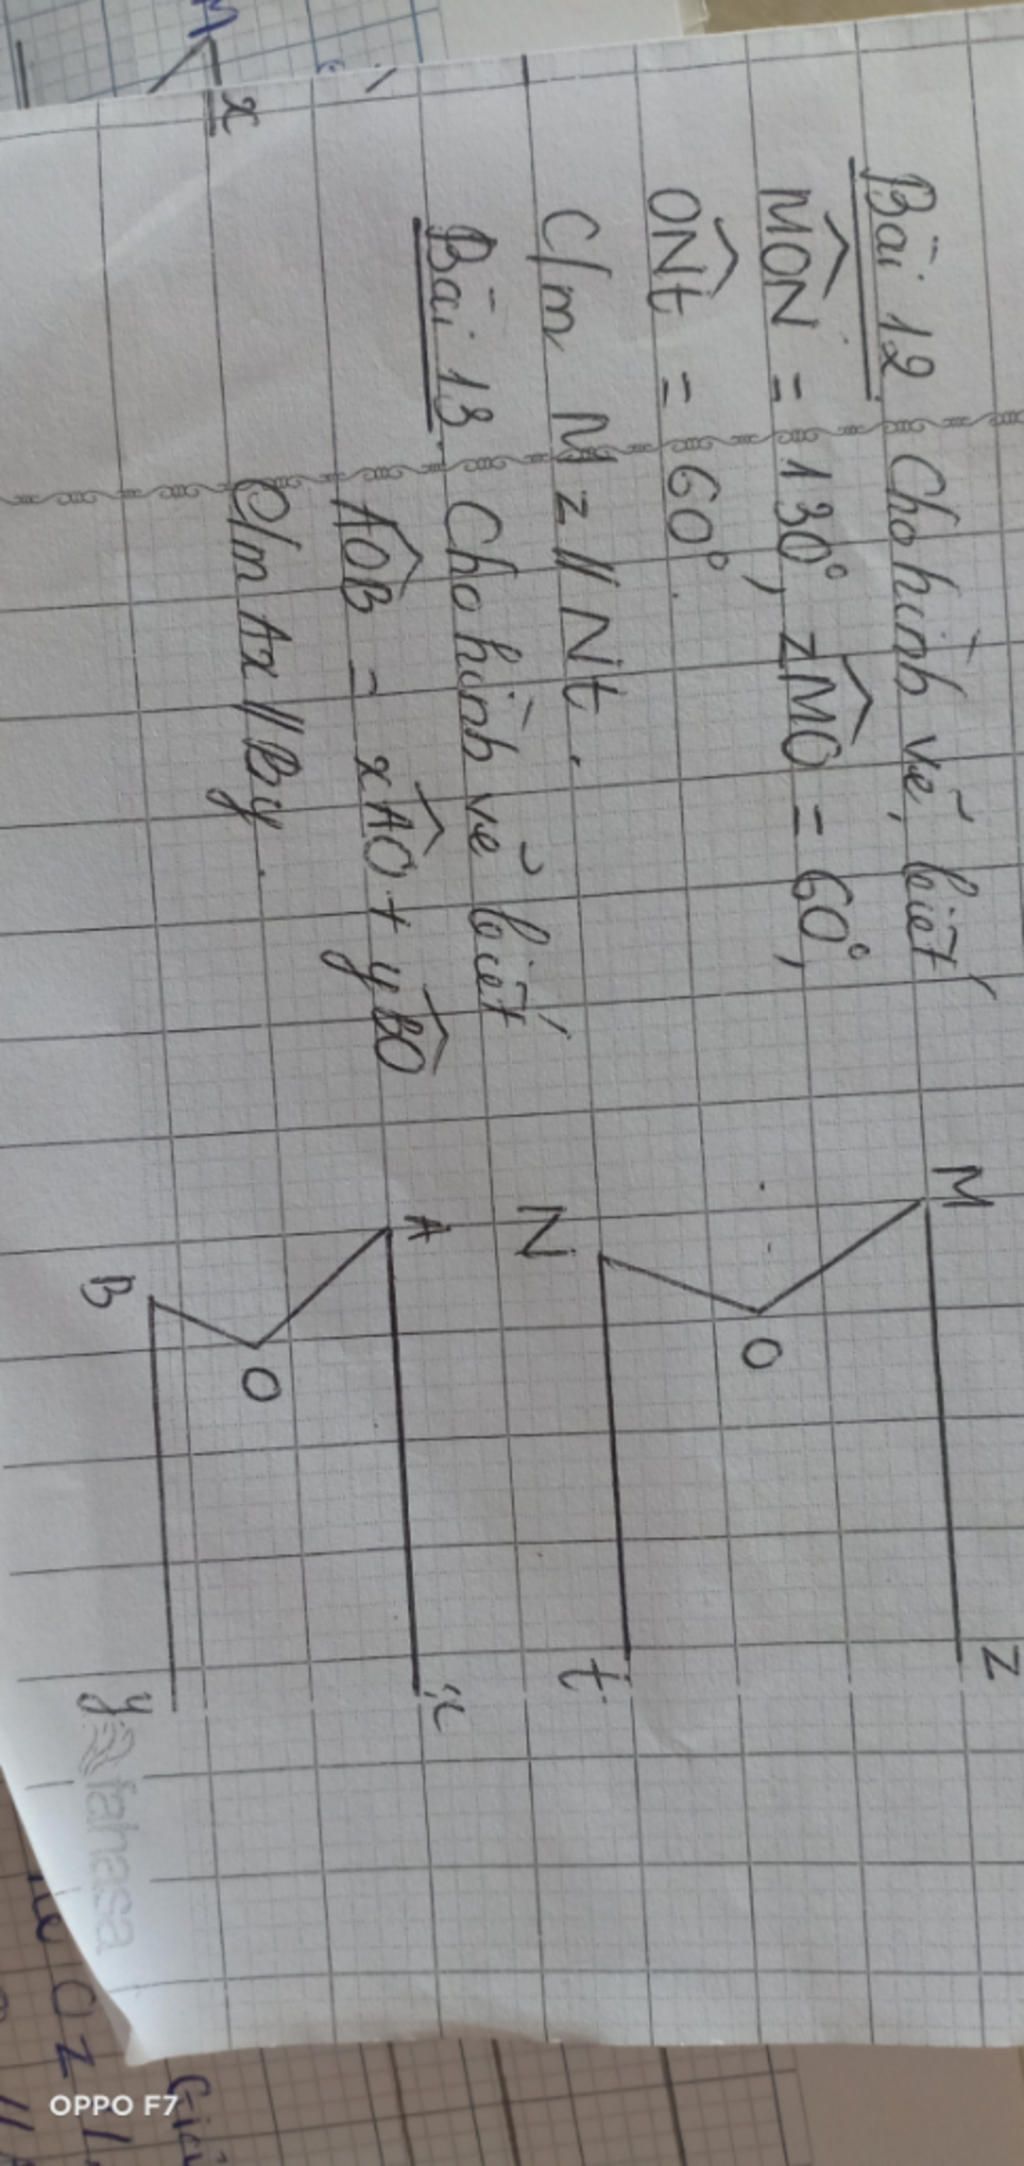 Bài 12 Cho hình vẽ, biết
MON = 130°, zMO = 60°,
ONt = 60°.
C/m Mz // Nt.
Bài 13. Cho hình vẽ biết
AOB = xAO + yBO
C/m Ax // By.
M
z
O
N
t
A
x
O
B
y
fahasa
x
Oz
OPPO F7